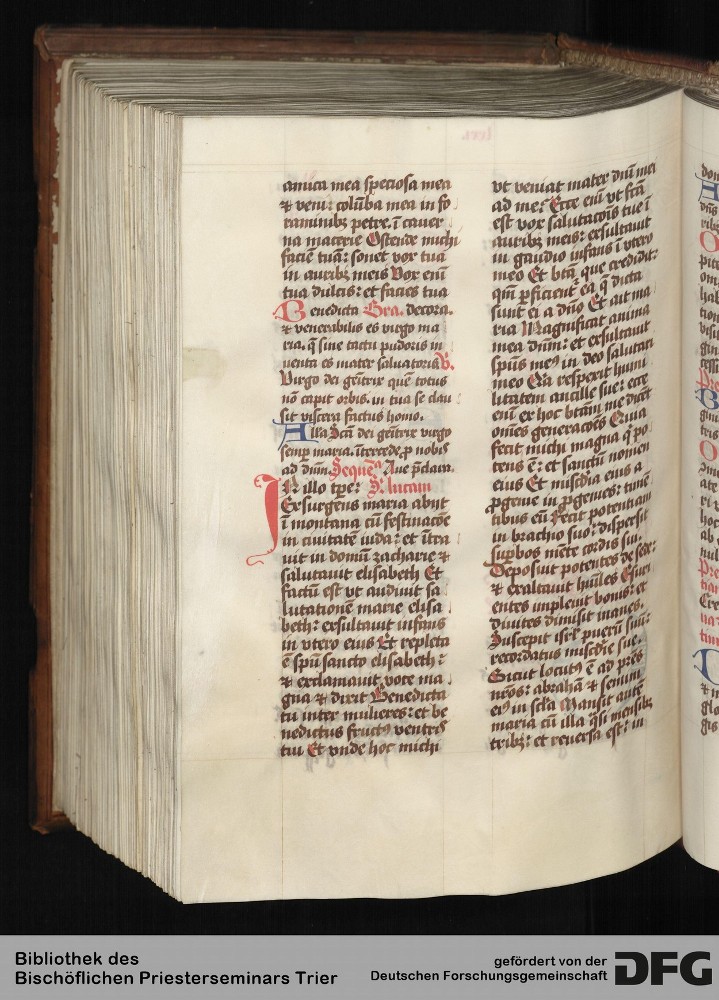 amica mea speciosa mea
⁊ veni : colūba mea in fo
raminibꝫ petre . ī caver
na macerie Ostende michi
faciē tuā : sonet vox tua
in auribꝫ meis Vox enī
tua dulcis : et facies tua
Benedicta Gra. decora.
⁊ venerabilis es virgo ma
ria . q̄ sine tactu pudoris in
venta es mater salvatoris V.
Virgo dei geītrix quē totus
nō capit orbis . in tua se clau
sit viscera factus homo .
Alla Scā dei geītrix virgo
semꝑ maria . ītercede ꝓ nobis
ad dn̄m . Seque Ave p̄clara.
IN illo tꝑe : S. lucam
Exsurgens maria abiit
ī montana cū festinacōe
in civitatē iuda : et ītra
uit in domū zacharie ⁊
salutauit elisabeth Et
factū est vt audiuit sa
lutationē marie elisa
beth : exsultauit infans
in vtero eius Et repleta
ē spū sancto elisabeth :
⁊ exclamauit voce ma
gna ⁊ dixit Benedicta
tu inter mulieres : et be
nedictus fructꝰ ventris
tui Et vnde hoc michi
vt veniat mater dn̄i mei
ad me : Ecce enī vt fc̄a
est vox salutacōis tue ī
auribꝫ meis : exsultauit
in gaudio infans ī vtero
meo Et bt̄a que credidit :
qm̄ ꝑficient ea q̄ dicta
sunt ei a dn̄o Et ait ma
ria Magnificat anima
mea dn̄m : et exsultauit
spūs meꝰ in deo salutari
meo Q̄a respexit humi
litatem ancille sue : ecce
enī ex hoc btām me dicēt
om̄es generacōes Quia
fecit michi magna q̄ po
tens ē : et sanctū nomen
eius Et mīscdia eius a
ꝓgenie in ꝓgenies : timē
tibus eū Fecit potentiam
in brachio suo : dispersit
suꝑbos mēte cordis sui .
Deposuit potentes de sede :
⁊ exaltauit huīles Esuri
entes impleuit bonis : et
diuites dimisit inanes .
Suscepit isrl̄ puerū suū :
recordatus mīscdie sue .
Sicut locutꝰ ē ad prēs
nr̄os : abrahā ⁊ semini
eiꝰ in scl̄a Mansit autē
maria cū illa q̄si mensibꝫ
tribꝫ : et reuersa est : in
Bibliothek des
Bischöflichen Priesterseminars Trier
gefördert von der
Deutschen Forschungsgemeinschaft
DFG